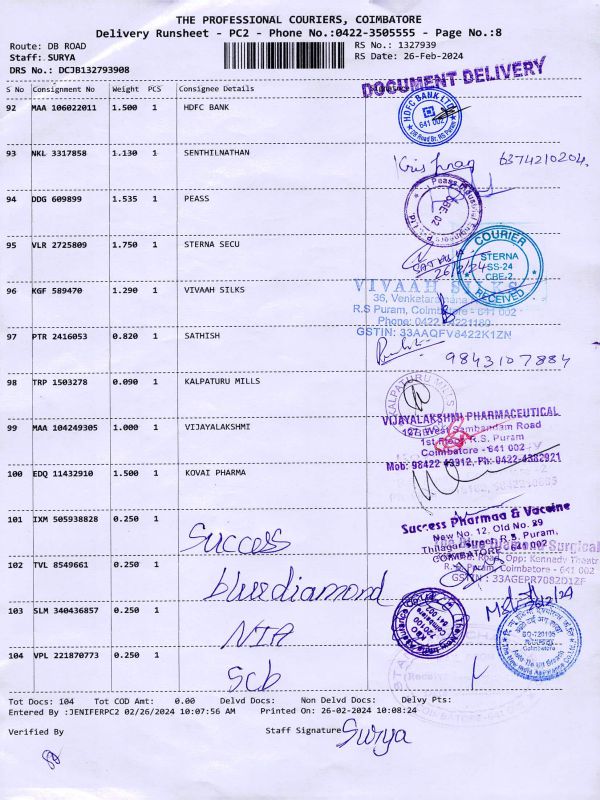 THE PROFESSIONAL COURIERS, COIMBATORE
Delivery Runsheet - PC2 - Phone No.:0422-3505555 - Page No.:8
Route: DB ROAD
RS No.: 1327939
Staff: SURYA
RS Date: 26-Feb-2024
DRS No.: DCJB132793908
DOCUMENT DELIVERY
S No Consignment No Weight PCS Consignee Details
92 MAA 106022011 1.500 1 HDFC BANK
HDFC BANK LTD
641 002
93 NKL 3317858 1.130 1 SENTHILNATHAN
6374210204
94 DDG 609899 1.535 1 PEASS
CBE. 02
95 VLR 2725809 1.750 1 STERNA SECU
26/2/24
COURIER
STERNA
SS-24
CBE-2
RECEIVED
96 KGF 589470 1.290 1 VIVAAH SILKS
VIVAAH SILKS
R.S Puram, Coimbatore - 641 002
GSTIN: 33AAQFV8422K1ZN
97 PTR 2416053 0.820 1 SATHISH
9843107884
98 TRP 1503278 0.090 1 KALPATURU MILLS
KALPATURU MILLS
99 MAA 104249305 1.000 1 VIJAYALAKSHMI
VIJAYALAKSHMI PHARMACEUTICAL
127, West Sambandam Road
1st Floor, R.S. Puram
Coimbatore - 641 002
Mob: 98422 43912, Ph: 0422-4382921
100 EDQ 11432910 1.500 1 KOVAI PHARMA
101 IXM 505938828 0.250 1
Success
Success Pharmaa & Vaccine
New No. 12, Old No. 29
R.S. Puram,
COIMBATORE - 641 002
Surgical
Opp: Kennedy Theatr
R.S. Puram, Coimbatore - 641 002
GSTIN : 33AGEPR7082D1ZF
102 TVL 8549661 0.250 1
bluediamond
103 SLM 340436857 0.250 1
NIA
720100
Coimbatore
641 002
104 VPL 221870773 0.250 1
scb
Tot Docs: 104 Tot COD Amt: 0.00 Delvd Docs: Non Delvd Docs: Delvy Pts:
Entered By :JENIFERPC2 02/26/2024 10:07:56 AM Printed On: 26-02-2024 10:08:24
Verified By
Staff Signature
Surya